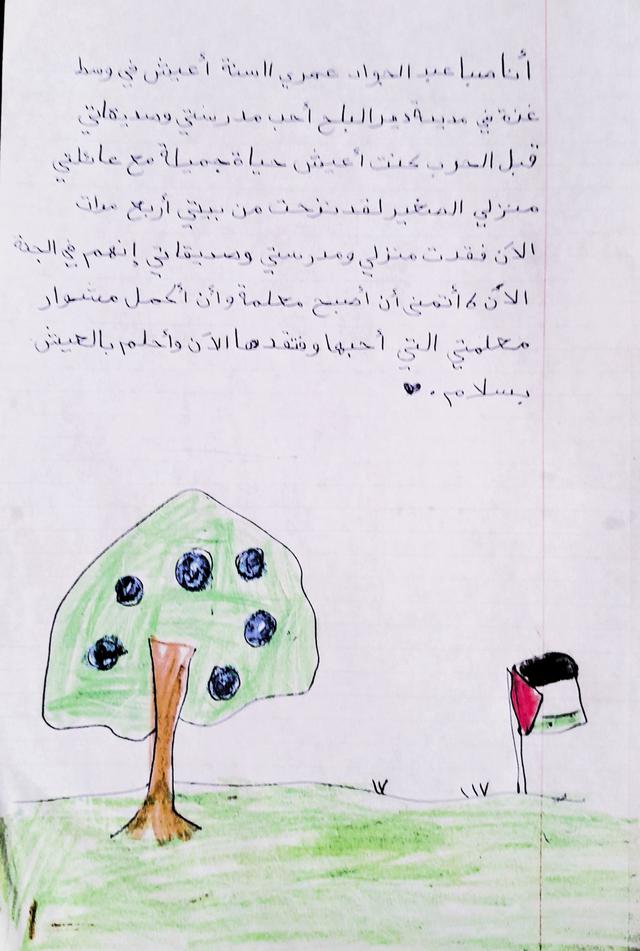 أنا صبا عبد الجواد عمري 11 سنة أعيش في وسط
غزة في مدينة دير البلح أحب مدرستي وصديقاتي
قبل الحرب كنت أعيش حياة جميلة مع عائلتي
منزلي الصغير لقد نزحت من بيتي أربع مرات
الآن فقدت منزلي ومدرستي وصديقاتي إنهم في الجنة
الآن، أتمنى أن أصبح معلمة وأن أكمل مشوار
معلمتي التي أحبها وفتقدها الآن وأحلم بالعيش
بسلام. ♥